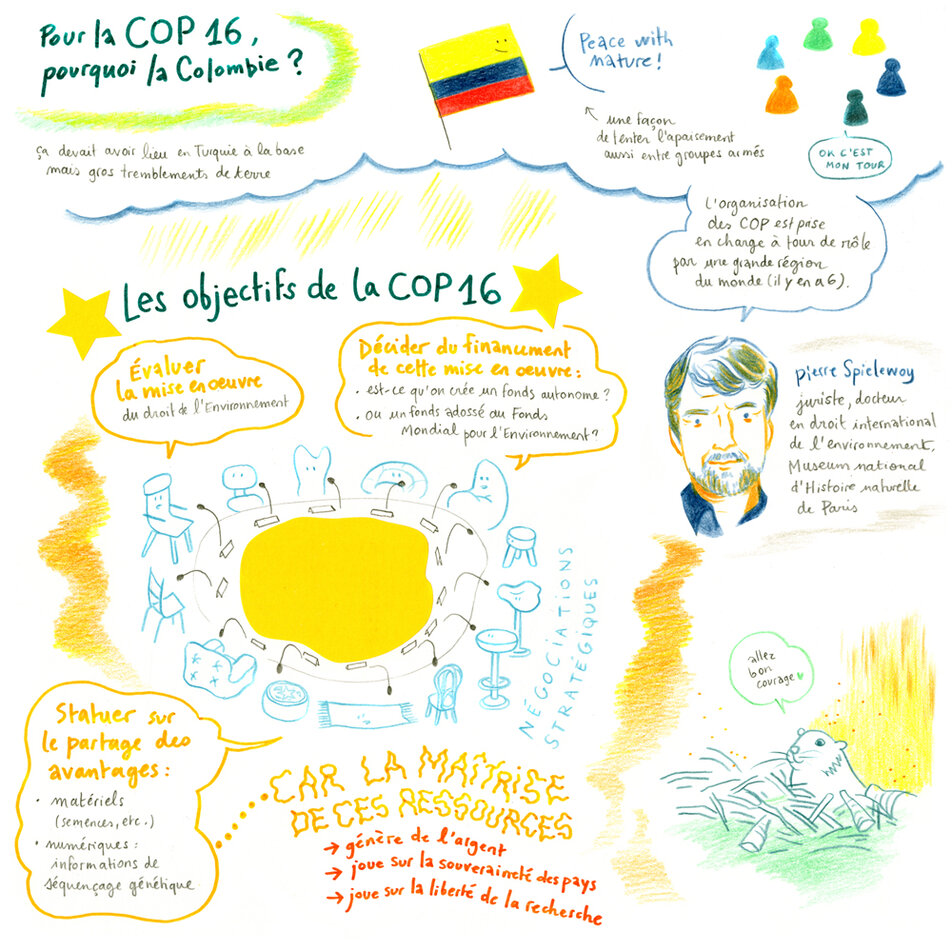 Pour la COP 16,
pourquoi la Colombie ?
ça devait avoir lieu en Turquie à la base
mais gros tremblements de terre
Peace with
nature !
une façon
de tenter l'apaisement
aussi entre groupes armés
OK C'EST
MON TOUR
L'organisation
des COP est prise
en charge à tour de rôle
par une grande région
du monde (il y en a 6).
Les objectifs de la COP 16
Évaluer
la mise en oeuvre
du droit de l'Environnement
Décider du financement
de cette mise en oeuvre :
• est-ce qu'on crée un fonds autonome ?
• ou un fonds adossé au Fonds
Mondial pour l'Environnement ?
pierre Spielewoy
juriste, docteur
en droit international
de l'environnement,
Museum national
d'Histoire naturelle
de Paris
NÉGOCIATIONS
STRATÉGIQUES
allez
bon
courage
Statuer sur
le partage des
avantages :
• matériels
(semences, etc.)
• numériques :
informations de
séquençage génétique
CAR LA MAÎTRISE
DE CES RESSOURCES
→ génère de l'argent
→ joue sur la souveraineté des pays
→ joue sur la liberté de la recherche